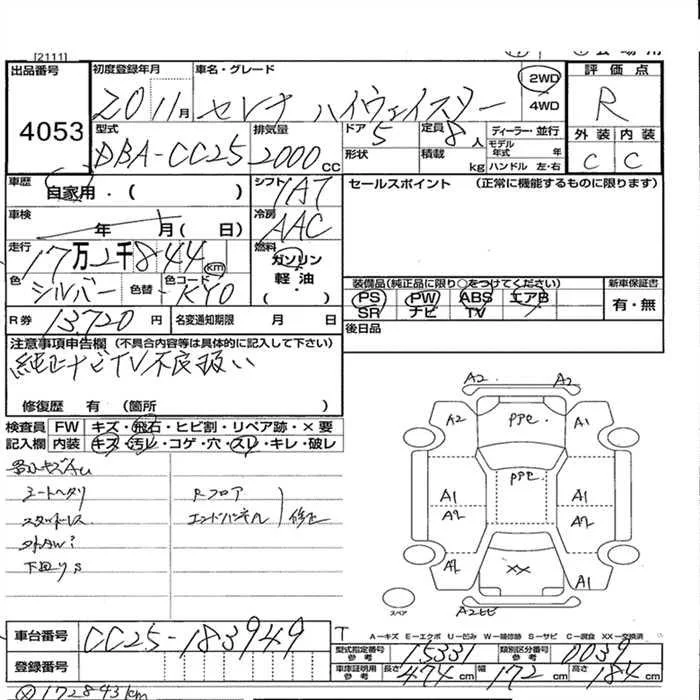 [2111]
出品番号 4053
初度登録年月 2011月
車名・グレード セレナ ハイウェイスター
2WD
4WD
評価点 R
外装 内装
C C
型式 DBA-CC25
排気量 2000CC
ドア 5
形状
定員 8人
積載 kg
ディーラー・並行
モデル年式 年
ハンドル 左・右
車歴 自家用・( )
シフト 1AT
セールスポイント (正常に機能するものに限ります)
車検 年 月( 日)
冷房 AAC
走行 17万2千844km
燃料 ガソリン
軽油
( ・ )
色 シルバー 色替・ 色コード KY0
装備品(純正品に限り○をつけてください)
PS PW ABS エアB
SR ナビ TV
新車保証書
有・無
R券 13,720円
名変通知期限 月 日
後日品
注意事項申告欄 (不具合内容等は具体的に記入して下さい)
純正ナビTV不良扱い
修復歴 有 (箇所 )
検査員 記入欄
FW キズ・飛石・ヒビ割・リペア跡・×要
内装 キズ・汚レ・コゲ・穴・スレ・キレ・破レ
シートヘタリ
スタッドレス
外AW
下回りS
Rフロア
エンドパネル 修正
A2 A2
A2 PPC A2
PPC
A1 A1
A2 A2
A2 XX A1
スペア
A2ヒビ
車台番号 CC25-183949
登録番号
T
A-キズ E-エクボ U-凹み W-補修跡 S-サビ C-腐食 XX-交換済
型式指定番号 参考 15331
類別区分番号 参考 0039
車庫証明用 参考 長さ 474cm 幅 172cm 高さ 184cm
172843km